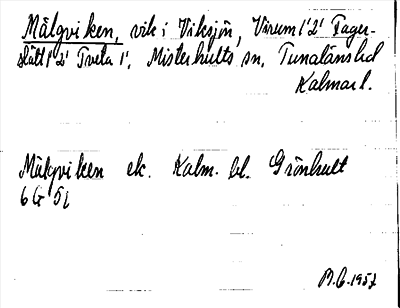 Målgviken, vik i Viksjön, Virum 1'2' Fager-
slätt 1'2' Tveta 1', Misterhults sn, Tunaläns hd
Kalmar l.
Målgviken ek. Kalm. bl. Grönhult
6 G 5 i
1957